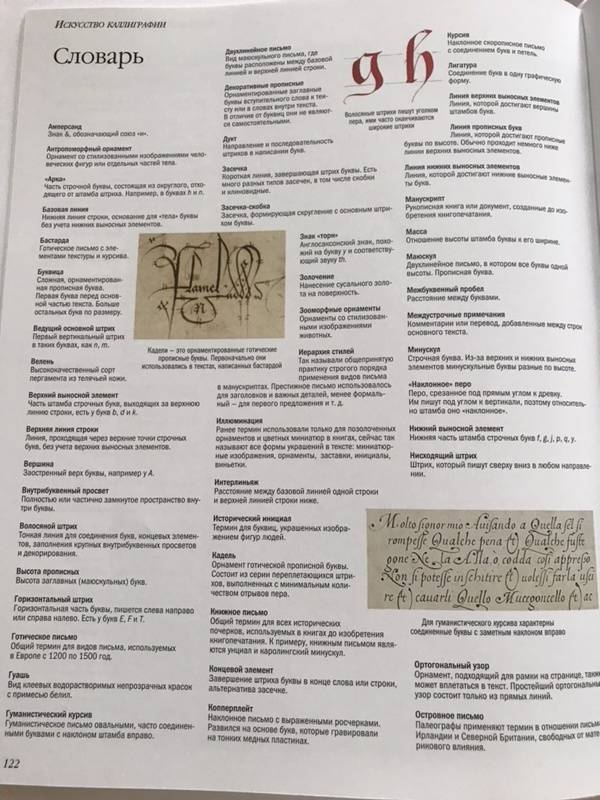 Искусство каллиграфии
Словарь
Амперсанд
Знак &, обозначающий союз «и».
Антропоморфный орнамент
Орнамент со стилизованными изображениями чело-
веческих фигур или отдельных частей тела.
«Арка»
Часть строчной буквы, состоящая из округлого, отхо-
дящего от штамба штриха. Например, в буквах h и n.
Базовая линия
Нижняя линия строки, основание для «тела» буквы
без учета нижних выносных элементов.
Бастарда
Готическое письмо с эле-
ментами текстуры и курсива.
Буквица
Сложная, орнаментирован-
ная прописная буква.
Первая буква перед основ-
ной частью текста. Больше
остальных букв по размеру.
Ведущий основной штрих
Первый вертикальный штрих
в таких буквах, как n, m.
Велень
Высококачественный сорт
пергамента из телячьей кожи.
Верхний выносной элемент
Часть штамба строчных букв, выходящих за верхнюю
линию строки, есть у букв b, d и k.
Верхняя линия строки
Линия, проходящая через верхние точки строчных
букв, без учета верхних выносных элементов.
Вершина
Заостренный верх буквы, например у A.
Внутрибуквенный просвет
Полностью или частично замкнутое пространство вну-
три буквы.
Волосяной штрих
Тонкая линия для соединения букв, концевых элемен-
тов, заполнения крупных внутрибуквенных просветов
и декорирования.
Высота прописных
Высота заглавных (маюскульных) букв.
Горизонтальный штрих
Горизонтальная часть буквы, пишется слева направо
или справа налево. Есть у букв E, F и T.
Готическое письмо
Общий термин для видов письма, используемых
в Европе с 1200 по 1500 год.
Гуашь
Вид клеевых водорастворимых непрозрачных красок
с примесью белил.
Гуманистический курсив
Гуманистическое письмо овальными, часто соединен-
ными буквами с наклоном штамба вправо.
122
Двухлинейное письмо
Вид маюскульного письма, где
буквы расположены между базовой
линией и верхней линией строки.
Декоративные прописные
Орнаментированные заглавные
буквы вступительного слова к тек-
сту или в словах внутри текста.
В отличие от буквиц они не являют-
ся самостоятельными.
Дукт
Направление и последовательность
штрихов в написании букв.
Засечка
Короткая линия, завершающая штрих буквы. Есть
много разных типов засечек, в том числе скобки
и клиновидные.
Засечка-скобка
Засечка, формирующая скругление с основным штри-
хом буквы.
Кадели – это орнаментированные готические
прописные буквы. Первоначально они
использовались в текстах, написанных бастардой
Знак «торн»
Англосаксонский знак, похо-
жий на букву y и соответству-
ющий звуку th.
Золочение
Нанесение сусального золо-
та на поверхность.
Зооморфные орнаменты
Орнаменты со стилизован-
ными изображениями
животных.
Иерархия стилей
Так называли общепринятую
практику строгого порядка
применения видов письма
в манускриптах. Престижное письмо использовалось
для заголовков и важных деталей, менее формаль-
ный – для первого предложения и т. д.
Иллюминация
Ранее термин использовали только для позолоченных
орнаментов и цветных миниатюр в книгах, сейчас так
называют все формы украшений в тексте: миниатюр-
ные изображения, орнаменты, заставки, инициалы,
виньетки.
Интерлиньяж
Расстояние между базовой линией одной строки
и верхней линией строки ниже.
Исторический инициал
Термин для буквиц, украшенных изобра-
жением фигур людей.
Кадель
Орнамент готической прописной буквы.
Состоит из серии переплетающихся штри-
хов, выполненных с минимальным коли-
чеством отрывов пера.
Книжное письмо
Общий термин для всех исторических
почерков, используемых в книгах до изобретения
книгопечатания. К примеру, книжным письмом явля-
ются унциал и каролингский минускул.
Концевой элемент
Завершение штриха буквы в конце слова или строки,
альтернатива засечке.
Копперплейт
Наклонное письмо с выраженными росчерками.
Развился на основе букв, которые гравировали
на тонких медных пластинах.
g h
Волосяные штрихи пишут уголком
пера, ими часто оканчиваются
широкие штрихи
Курсив
Наклонное скорописное письмо
с соединением букв и петель.
Лигатура
Соединение букв в одну графическую
форму.
Линия верхних выносных элементов
Линия, которой достигают вершины
штамбов букв.
Линия прописных букв
Линия, которой достигают прописные
буквы по высоте. Обычно проходит немного ниже
линии верхних выносных элементов.
Линия нижних выносных элементов
Линия, которой достигают нижние выносные элемен-
ты букв.
Манускрипт
Рукописная книга или документ, созданные до изо-
бретения книгопечатания.
Масса
Отношение высоты штамба буквы к его ширине.
Маюскул
Двухлинейное письмо, в котором все буквы одной
высоты. Прописная буква.
Межбуквенный пробел
Расстояние между буквами.
Междустрочные примечания
Комментарии или перевод, добавленные между строк
основного текста.
Минускул
Строчная буква. Из-за верхних и нижних выносных
элементов минускульные буквы разные по высоте.
«Наклонное» перо
Перо, срезанное под прямым углом к древку.
Им пишут под углом к вертикали, поэтому относитель-
но штамба оно «наклонное».
Нижний выносной элемент
Нижняя часть штамба строчных букв f, g, j, p, q, y.
Нисходящий штрих
Штрих, который пишут сверху вниз в любом направле-
нии.
Molto signor mio Auisando a Quella sel si
rompesse Qualche pena Qualche fuste
Non si potesse
re cauarli Quello
Для гуманистического курсива характерны
соединенные буквы с заметным наклоном вправо
Ортогональный узор
Орнамент, подходящий для рамки на странице, также
может вплетаться в текст. Простейший ортогональный
узор состоит только из прямых линий.
Островное письмо
Палеографы применяют термин в отношении письма
Ирландии и Северной Британии, свободных от мате-
рикового влияния.